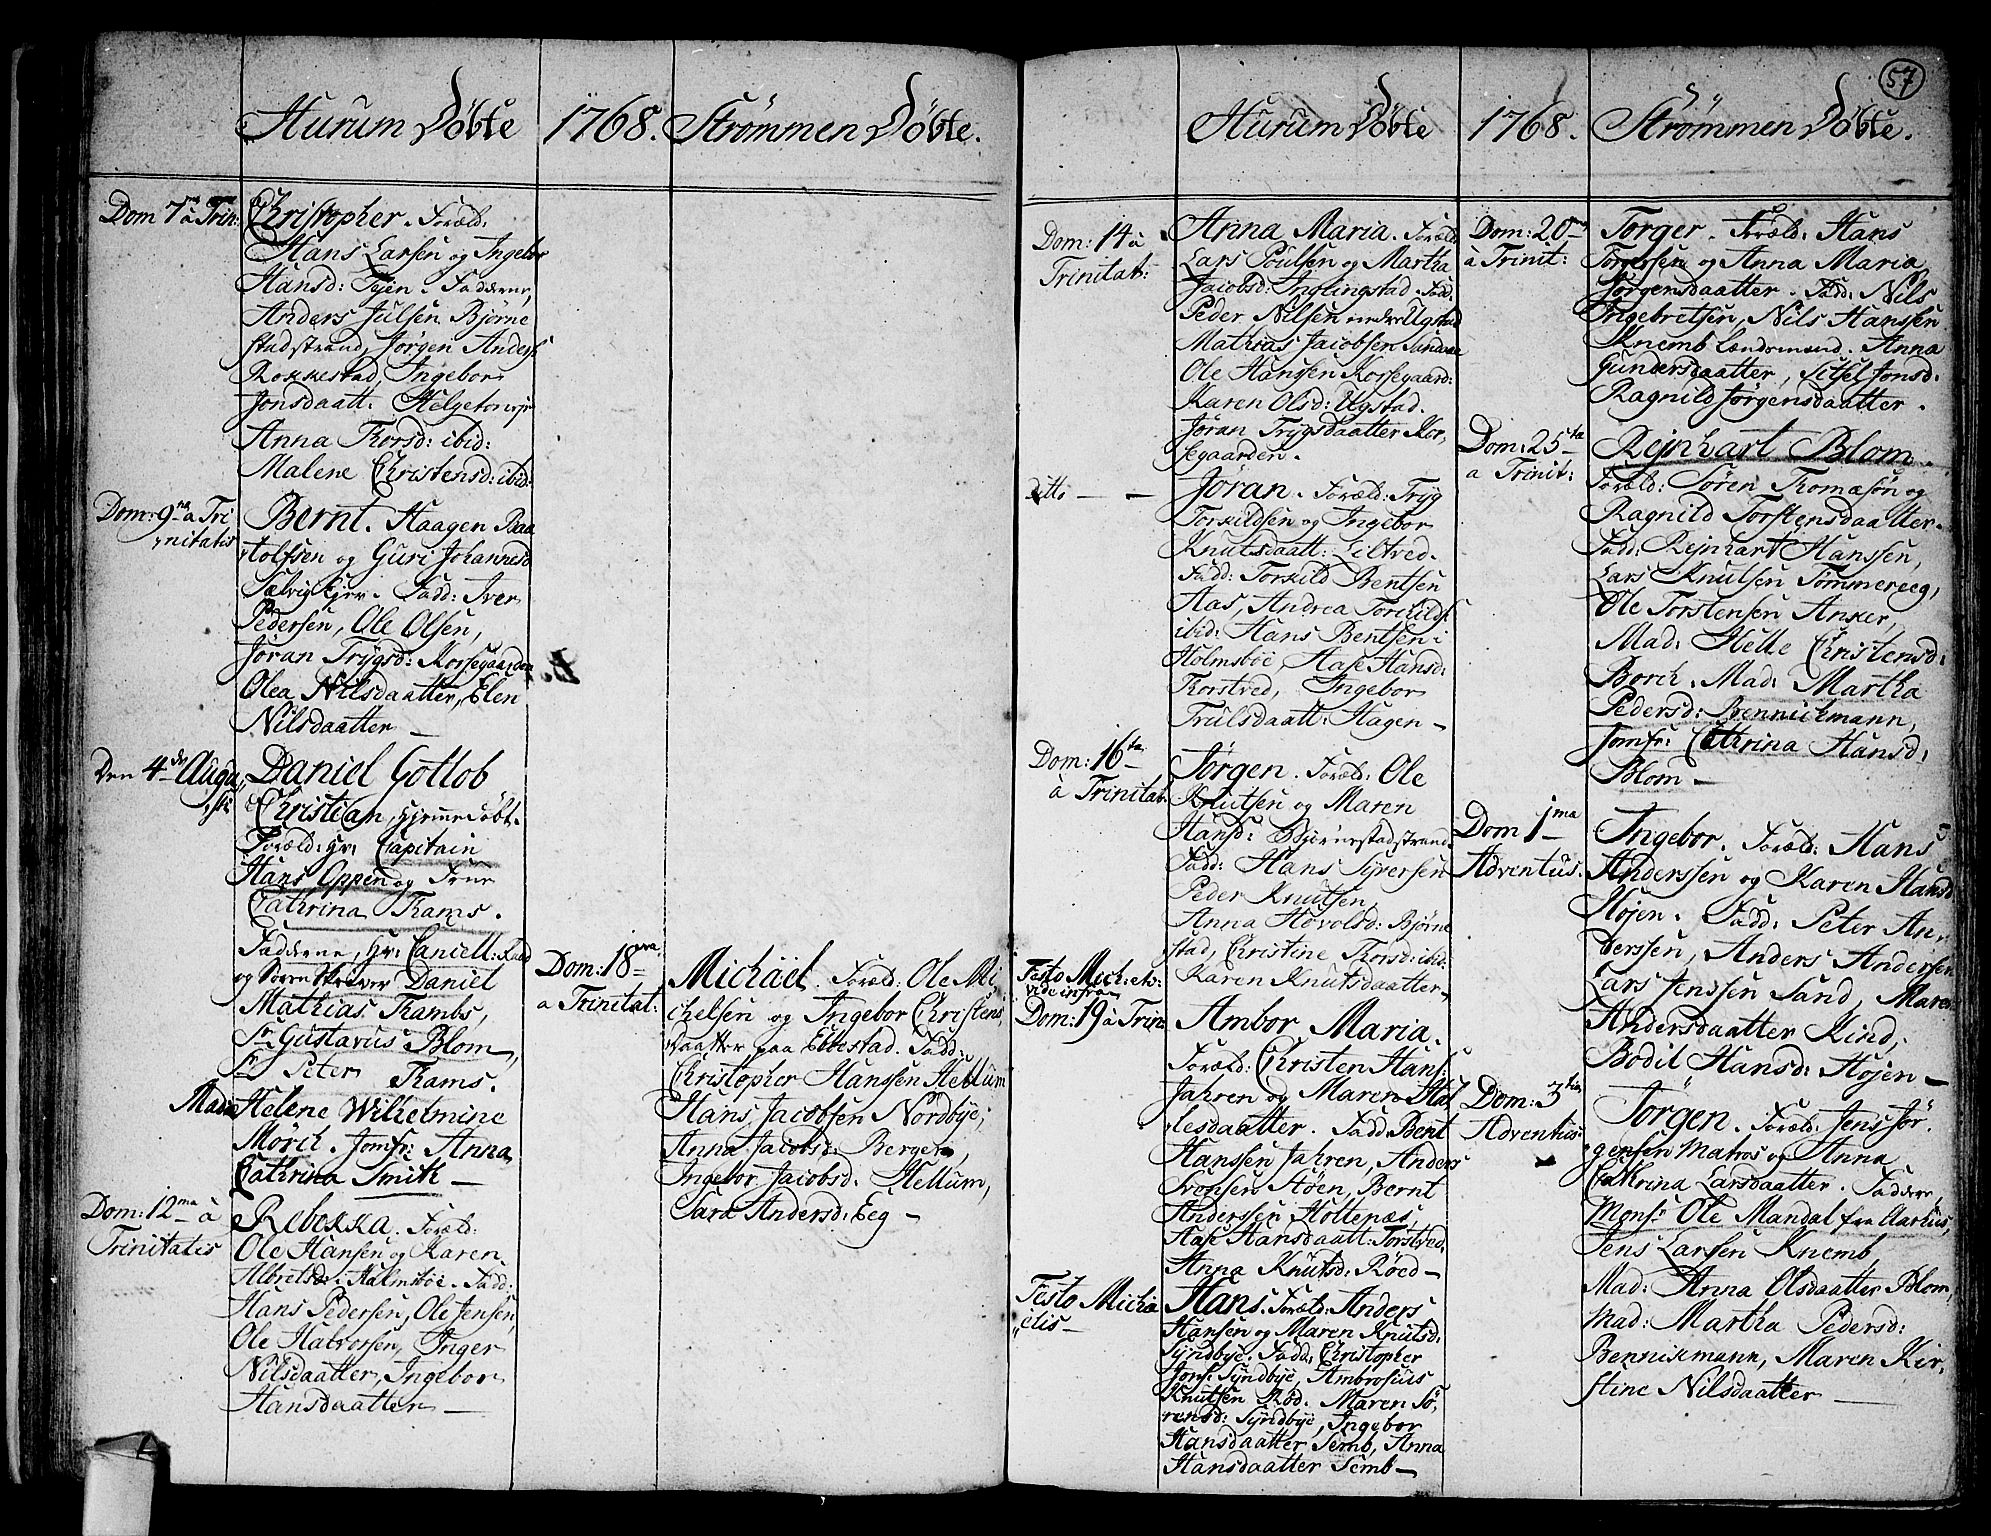 Hurum Döbte 1768. Strømmen Döbte.
Dom 7ma à Trin:
Christopher. Foræld:
Hans Larsen og Ingebor
Hansd: Tejen. Fadderne,
Anders Julsen Bjørne
stadstrand, Jørgen Anders:
Rokkestad, Ingebor
Jonsdaatt: Helgetons ej:
Anna Thorsd: ibid:
Malene Christensd: ibid:
Dom: 9na à Tri
nitatis
Bernt. Haagen Paa
tolfsen og Guri Johannesd
Sælvigejer. Fadd: Iver
Pedersen, Ole Olsen,
Jöran Trygsd: Korsegaarden
Olea Nilsdaatter, Elen
Nilsdaatter —
Den 4de Augu
sti
Daniel Gotlob
Christian, hjemedöbt.
Foræld: Hr: Capitain
Hans Oppen og Frue
Cathrina Thams.
Fadderne, Hr: Cancell: Raad
og Sorenskriver Daniel
Mathias Thambs,
Sr Gustavus Blom,
Sr Peter Thams.
Mad: Helene Wilhelmine
Mörch. Jomfr: Anna
Cathrina Smith —
Dom: 12ma à
Trinitatis
Rebekka. Foræld:
Ole Hansen og Karen
Albretsd: Halmsböe. Fadd:
Hans Pedersen, Ole Jensen,
Ole Halvorsen, Inger
Nilsdaatter, Ingebor
Hansdaatter —
Dom: 18va
a Trinitat:
Michäel. Foræld: Ole Mi
chelsen og Ingebor Christens,
daatter paa Ebbestad. Fadd:
Christopher Hanssen Hellum
Hans Jacobsen Nordbye;
Anna Jacobsd: Berger,
Ingebor Jacobsd: Hellum,
Sara Andersd: Eeg —
57
Hurum Döbte 1768. Strømmen Döbte.
Dom: 14 à
Trinitat:
Anna Maria. Foræld
Lars Poulsen og Martha
Jacobsd: Inglingstad. Fad:
Peder Nilsen nedre Ugstad
Mathias Jacobsen Sandane
Ole Hanssen Korsegaard:
Karen Olsd: Ugstad.
Jöran Trygsdaatter Kor,
segaarden.
Ditto — —
Jöran. Foræld: Tryg
Torkildsen og Ingebor
Knutsdaatt: Liltved.
Fadd: Torkild Bentsen
Aas, Andrea Torchilds
ibid: Hans Bentsen i
Holmsböe, Aase Hansd:
Thorstved, Ingebor
Trulsdaatt: Hagen —
Dom: 16ta
à Trinitat:
Jörgen. Foræld: Ole
Knutsen og Maren
Hansd: Bjørnestadstrand.
Fadd: Hans Syversen
Peder Knutsen,
Anna Hovolsd: Bjørne
stad, Christine Thorsd: ibid:
Karen Knutsdaatter —
Festo Mich:elis:
vide infra
Dom: 19 à Trin:
Ambor Maria.
Foræld: Christen Hans:
Jahren og Maren Hal
lesdaatter. Fadd Bent
Hanssen Jahren, Anders
Svensen Støen, Bernt
Anderssen Holtenæs,
Aase Hansdaatt: Torstved,
Anna Knutsd: Röed —
Festo Micha
elis —
Hans. Foræld: Anders
Hansen og Maren Knutsd:
Syndbye. Fadd: Christopher
Jons: Syndbye, Ambrosius
Knutsen Röd. Maren Sö,
rensd: Syndbye, Ingebor
Hansdaatter Semb, Anna
Hansdaatter Semb —
Dom: 20ma
à Trinit:
Torger. Foræld: Hans
Torgersen og Anna Maria
Jørgensdaatter. Fadd: Nils
Ingebretsen, Nils Hanssen
Knemb Lændsmand. Anna
Gundersdaatter, Sitsel Jonsd:
Ragnild Jörgensdaatter.
Dom: 25ta
a Trinit:
Rejnhart Blom.
Foræld: Søren Thomasøn og
Ragnild Torstensdaatter.
Fadd: Rejnhart Hanssen,
Lars Knutsen Tømmereeg,
Ole Torstensen Anker,
Mad: Helle Christensd:
Borch. Mad: Martha
Pedersd: Bennickmann,
Jomfr: Cathrina Hansd:
Blom —
Dom 1ma
Adventus.
Ingebor. Foræld: Hans
Anderssen og Karen Hansd
Höjen. Fadd: Peter An
derssen, Anders Andersen
Lars Jenssen Sand, Maren
Andersdaatter Kind,
Bodil Hansd: Höjen —
Dom: 3tia
Adventus:
Jörgen. Foræld: Jens Jör,
gensen Matros og Anna
Cathrina Larsdaatter. Faddere,
Monsr Ole Mandal fra Aarhus,
Jens Larsen Knemb
Mad: Anna Olsdaatter Blom,
Mad: Martha Pedersd:
Bennikmann, Maren Kir,
stine Nilsdaatter —